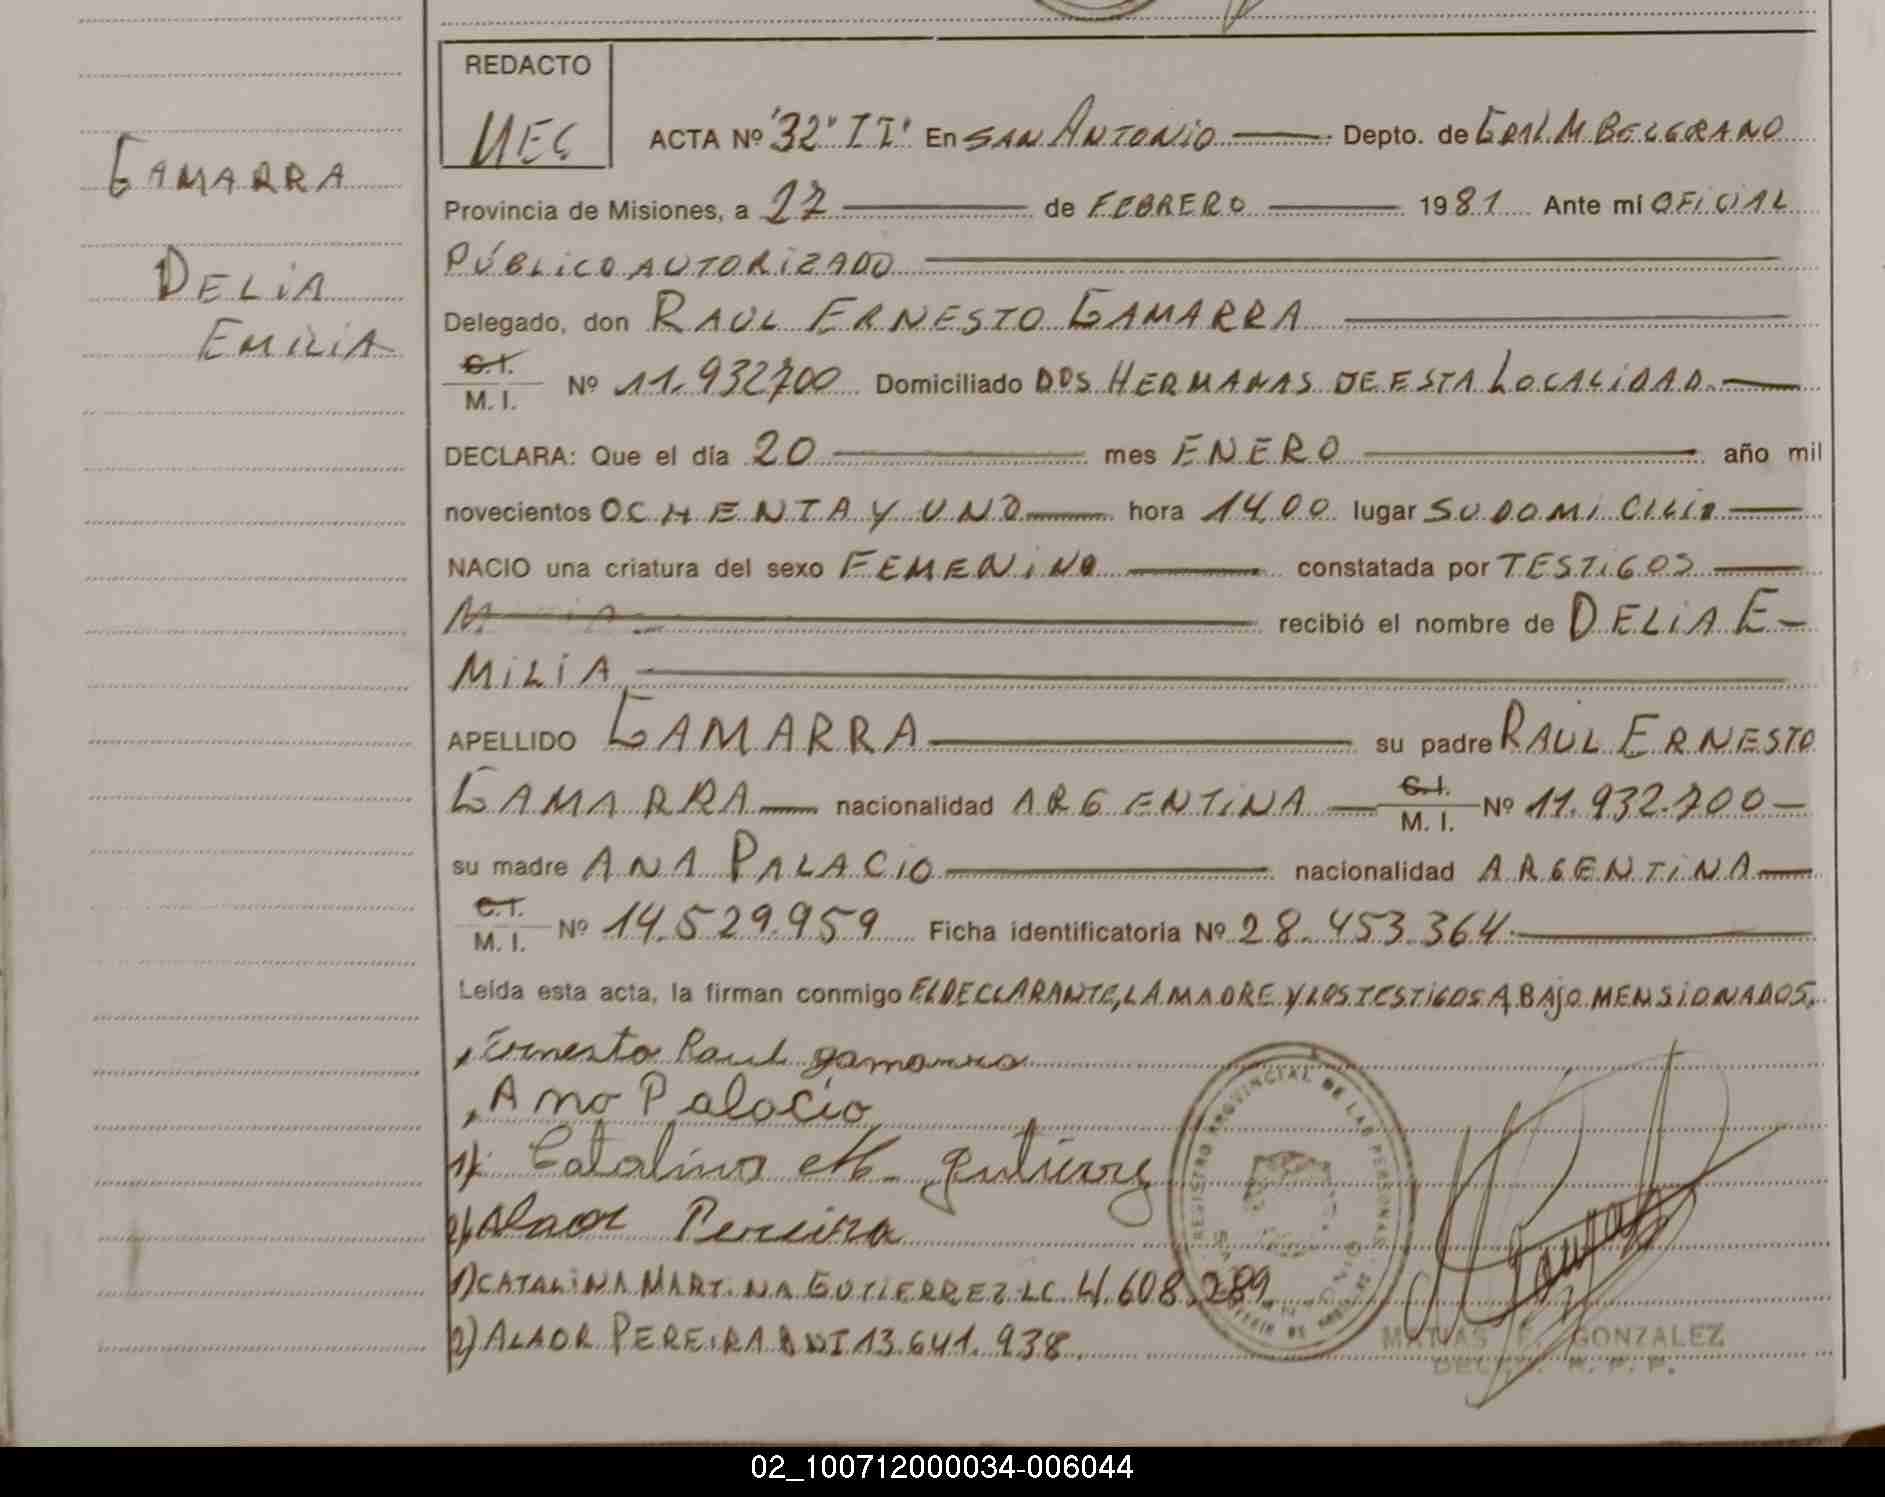 REDACTO
MEG
ACTA Nº "32" II" En SAN ANTONIO Depto. de GRAL M. BELGRANO
Provincia de Misiones, a 27 de FEBRERO 1981 Ante mí OFICIAL
PÚBLICO AUTORIZADO
Delegado, don RAUL ERNESTO GAMARRA
C.I.
M. I. Nº 11.932700 Domiciliado DOS HERMANAS DE ESTA LOCALIDAD
DECLARA: Que el día 20 mes ENERO año mil
novecientos OCHENTA Y UNO hora 14,00 lugar SU DOMICILIO
NACIO una criatura del sexo FEMENINO constatada por TESTIGOS
recibió el nombre de DELIA E-
MILIA
APELLIDO GAMARRA su padre RAUL ERNESTO
GAMARRA nacionalidad ARGENTINA C.I. M. I. Nº 11.932.700
su madre ANA PALACIO nacionalidad ARGENTINA
C.I.
M. I. Nº 14.529.959 Ficha identificatoria Nº 28.453.364
Leída esta acta, la firman conmigo EL DECLARANTE, LA MADRE Y LOS TESTIGOS ABAJO MENSIONADOS.
Ernesto Raul gamarra
Ana Palacio
1) Catalina M. gutierrez
2) Alaor Pereira
1) CATALINA MARTINA GUTIERREZ LC 4.608.289
2) ALAOR PEREIRA DNI 13.641.938
GAMARRA
DELIA
EMILIA
REGISTRO PROVINCIAL DE LAS PERSONAS
SAN ANTONIO
MATIAS F. GONZALEZ
DELEG. R. P. P.
02_100712000034-006044